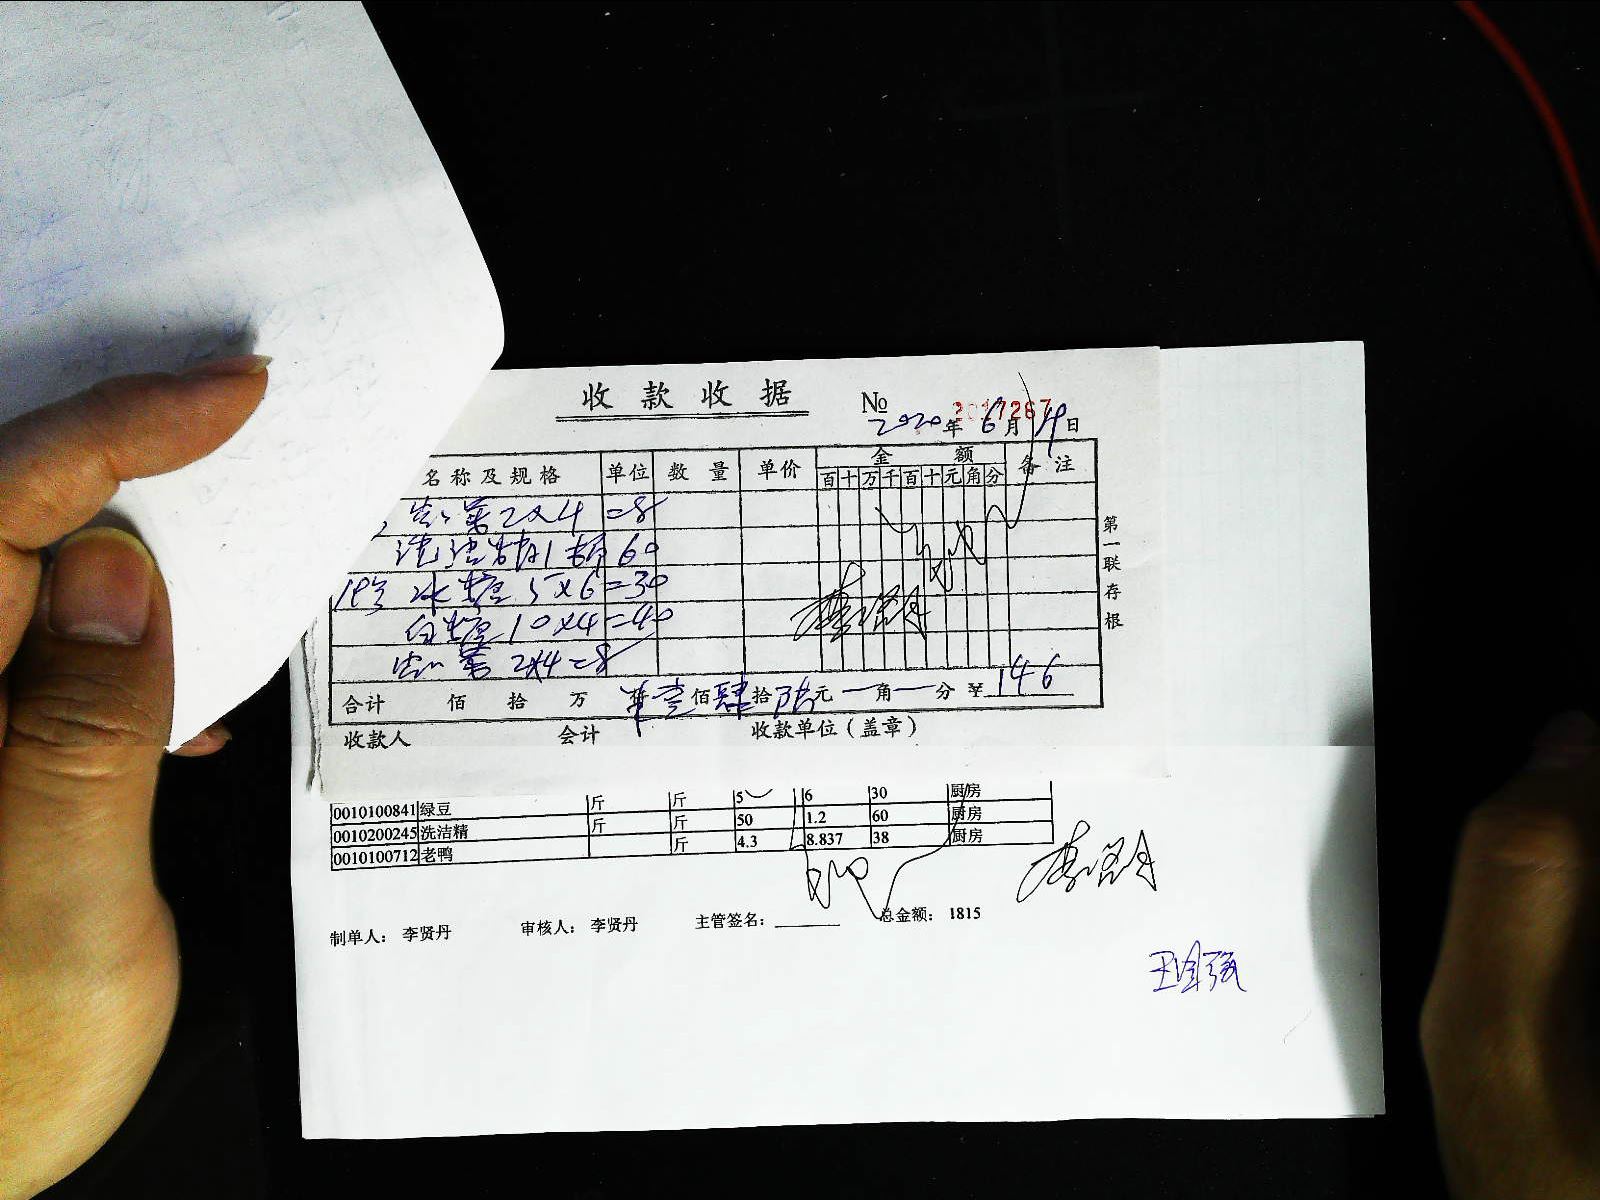 收款收据 № 2017267
2020年6月19日
名称及规格 单位 数量 单价 金额 备注
百十万千百十元角分
2×4=8
洗洁精1桶60
冰糖 5×6=30
白糖 10×4=40
2×4=8
合计 佰 拾 万 仟壹佰肆拾陆元一角一分 ¥146
收款人 会计 收款单位(盖章)
第一联存根
斤 斤 5 6 30 厨房
0010100841 绿豆 斤 斤 50 1.2 60 厨房
0010200245 洗洁精 斤 4.3 8.837 38 厨房
0010100712 老鸭
制单人: 李贤丹 审核人: 李贤丹 主管签名: 总金额: 1815